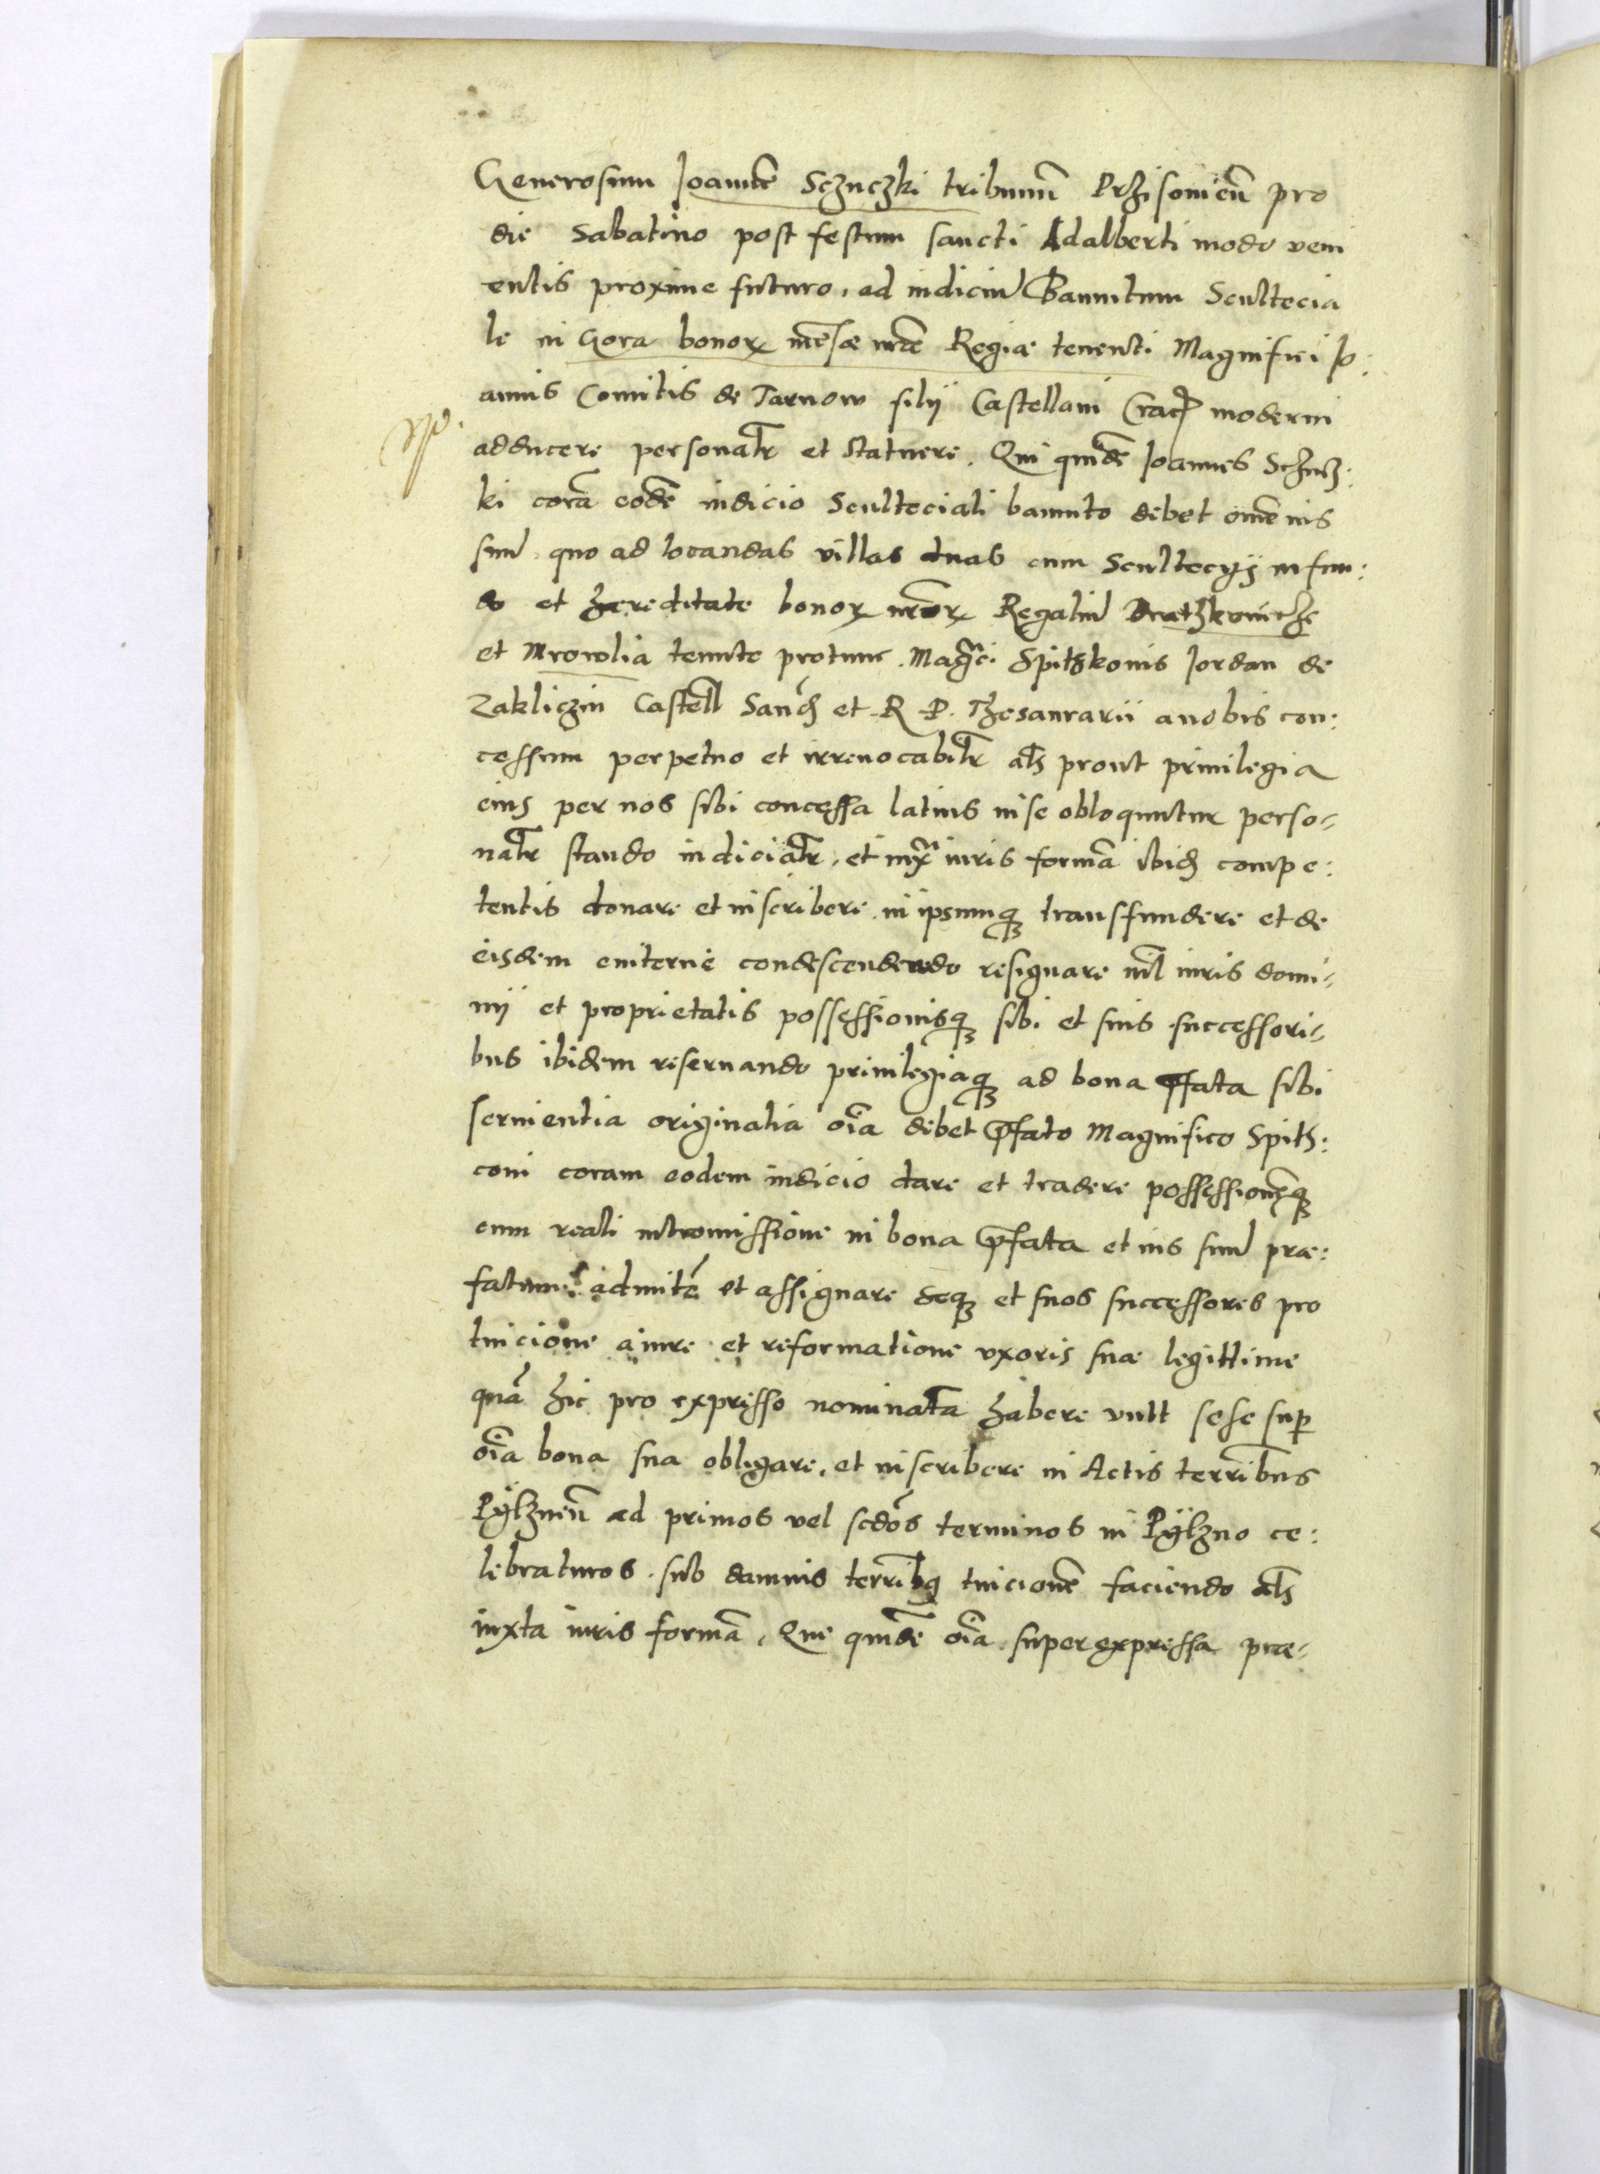 Generosum Joannē Sczuczki tribunū Przisouieñ pro
die Sabatino post festum sancti Adalberti modo veni
entis proxime futuro, ad iudiciū Bannitum Scultecia
le in Gora bonorꝝ mēsæ nr̃æ Regiæ tenenti Magnifici Jo:
annis Comitis de Tarnow filij Castellani Crać moderni
adducere personalr̃ et statuere. Qui quidē Joannes Schucz:
ki corā eodē iudicio Scultetiali bannito debet omē ius
suū quo ad locandas villas duas cum Scultecijs in fun:
do et hæreditate bonorꝝ nr̃orꝝ Regaliū
et Mrowlia tenute protunc Magci Spithkonis Jordan de
Zakliczin Castell Sandć et R P. Thesaurarii a nobis con:
cessum perpetuo et irreuocabilr̃ als prout priuilegia
eius per nos sibi concessa latius in se obloquuntur perso-
nalr̃ stando iudicialr̃, et iuxa iuris formā ibidē compe:
tentis donare et inscribere in ipsumqȝ transfundere et de
eisdem euiterne condescendendo resignare nil iuris domi-
nij et proprietatis possessionisqȝ sibi et suis successori-
bus ibidem reseruando priuilegiaqȝ ad bona p̄fata sibi
seruientia originalia oīa debet p̄fato Magnifico Spith:
coni coram eodem iudicio dare et tradere possessionēqȝ
cum reali intromissione in bona p̄fata et ius suū præ:
fatum admitē et assignare seqȝ et suos successores pro
tuicione a iure et reformatione vxoris suæ legittime
quā hic pro expresso nominatā habere vult sese sup̄
oīa bona sua obligare, et inscribere in Actis terrībus
Pylzneñ ad primos vel scdōs terminos in Pylzno ce:
lebraturos sub damnis terrībq tuicionē faciendo als
iuxta iuris formā, Que quidē oīa superexpressa præ-